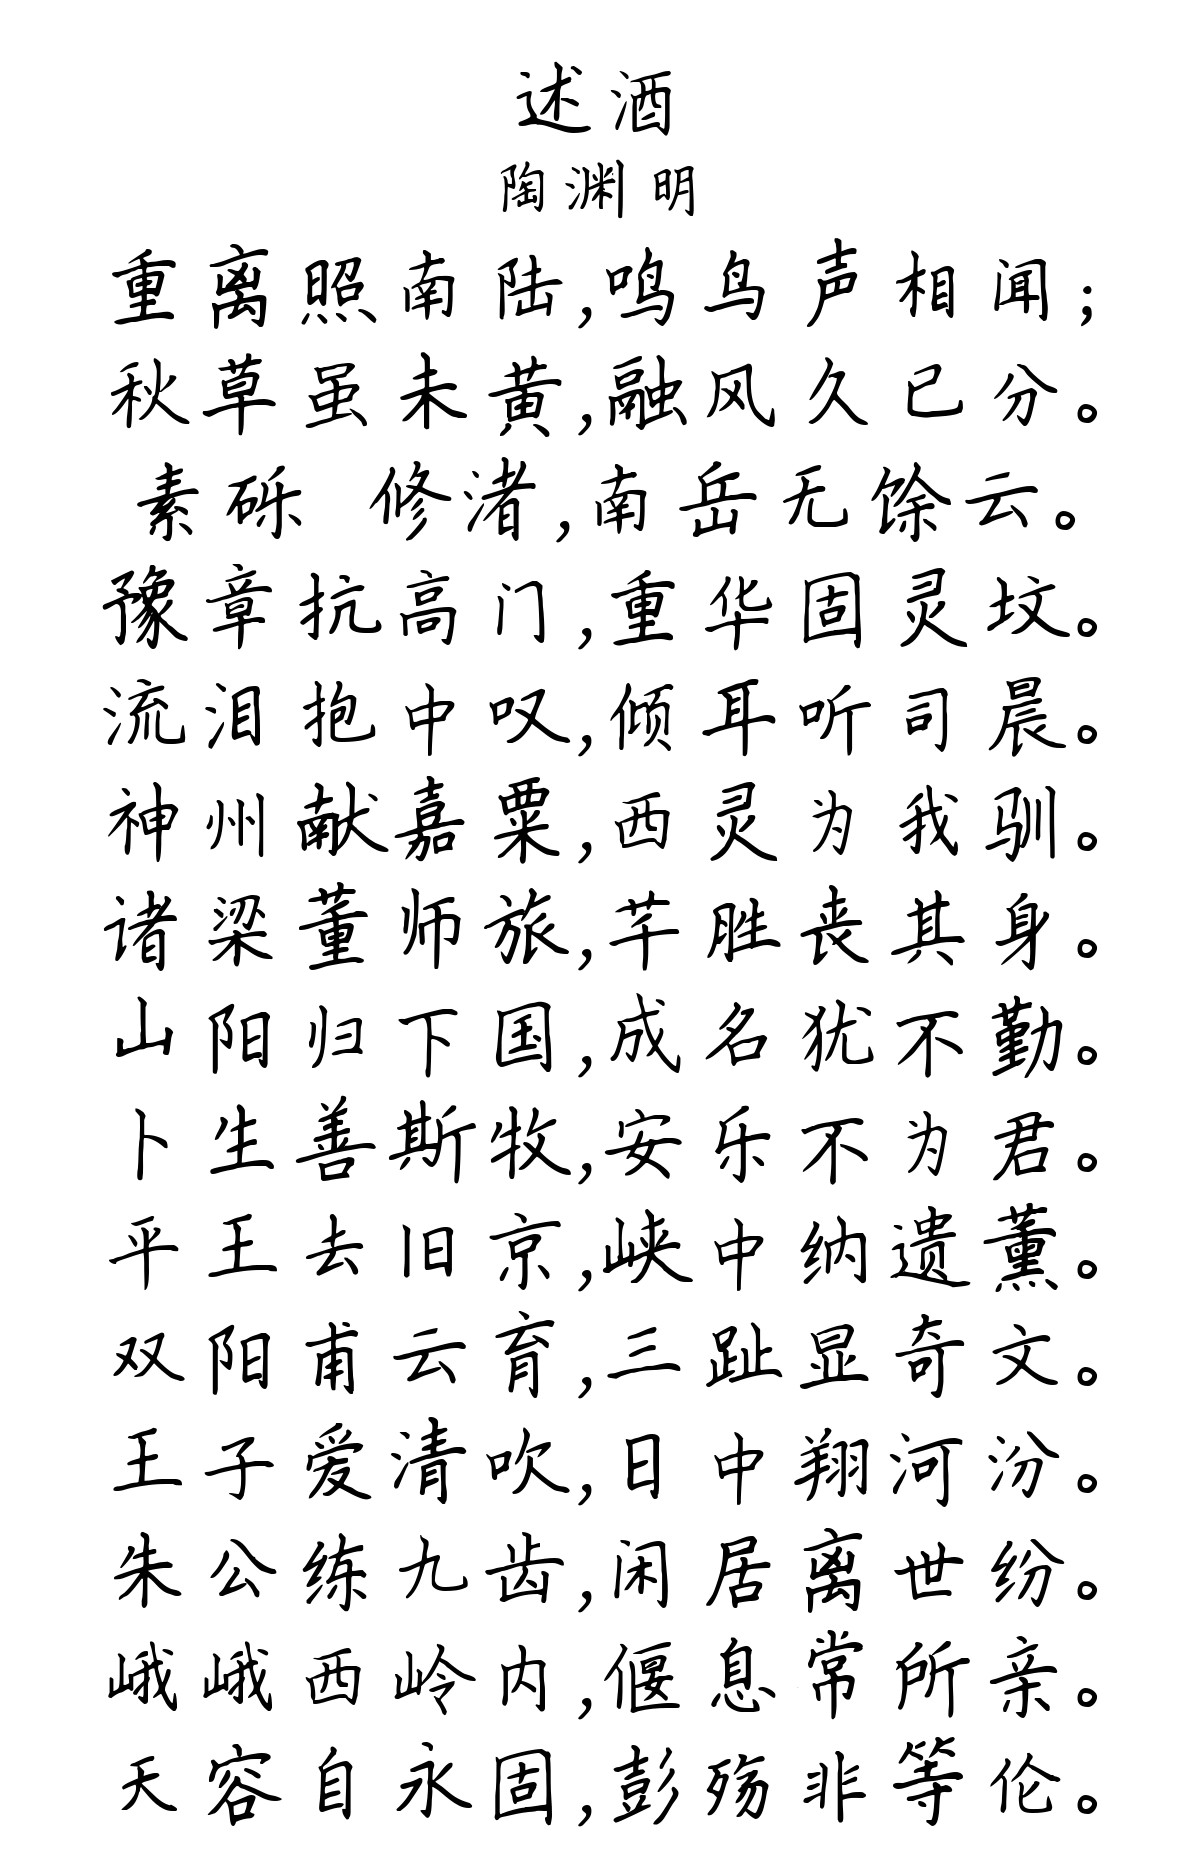 述酒
陶渊明
重离照南陆,鸣鸟声相闻;
秋草虽未黄,融风久已分。
素砾 修渚,南岳无馀云。
豫章抗高门,重华固灵坟。
流泪抱中叹,倾耳听司晨。
神州献嘉粟,西灵为我驯。
诸梁董师旅,芊胜丧其身。
山阳归下国,成名犹不勤。
卜生善斯牧,安乐不为君。
平王去旧京,峡中纳遗薰。
双阳甫云育,三趾显奇文。
王子爱清吹,日中翔河汾。
朱公练九齿,闲居离世纷。
峨峨西岭内,偃息常所亲。
天容自永固,彭殇非等伦。